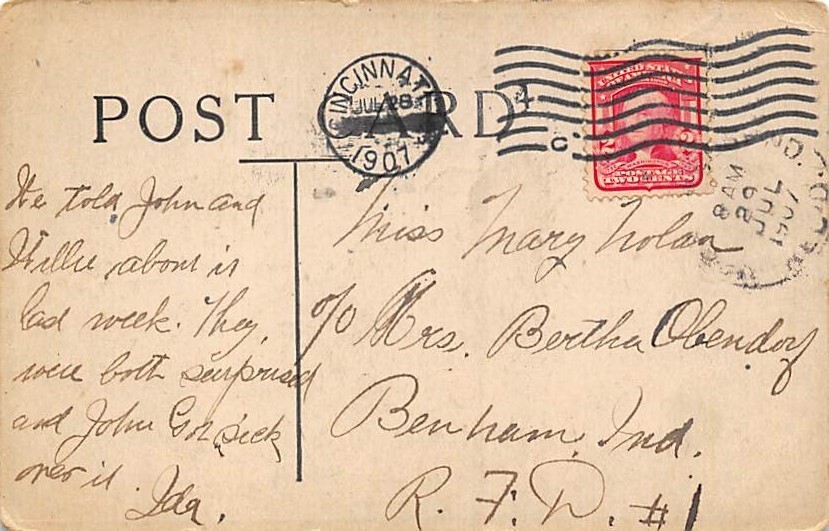 POST CARD
CINCINNATI
JUL 28
1907
4
C
UNITED STATES
OF AMERICA
2 2
POSTAGE
TWO CENTS
IND.
8 AM
29
JUL
1907
We told John and
Willie about it
last week. They
were both surprised
and John Got sick
over it.
Ida.
Miss Mary Nolan
c/o Mrs. Bertha Obendorf
Benham, Ind.
R. F. D. #1